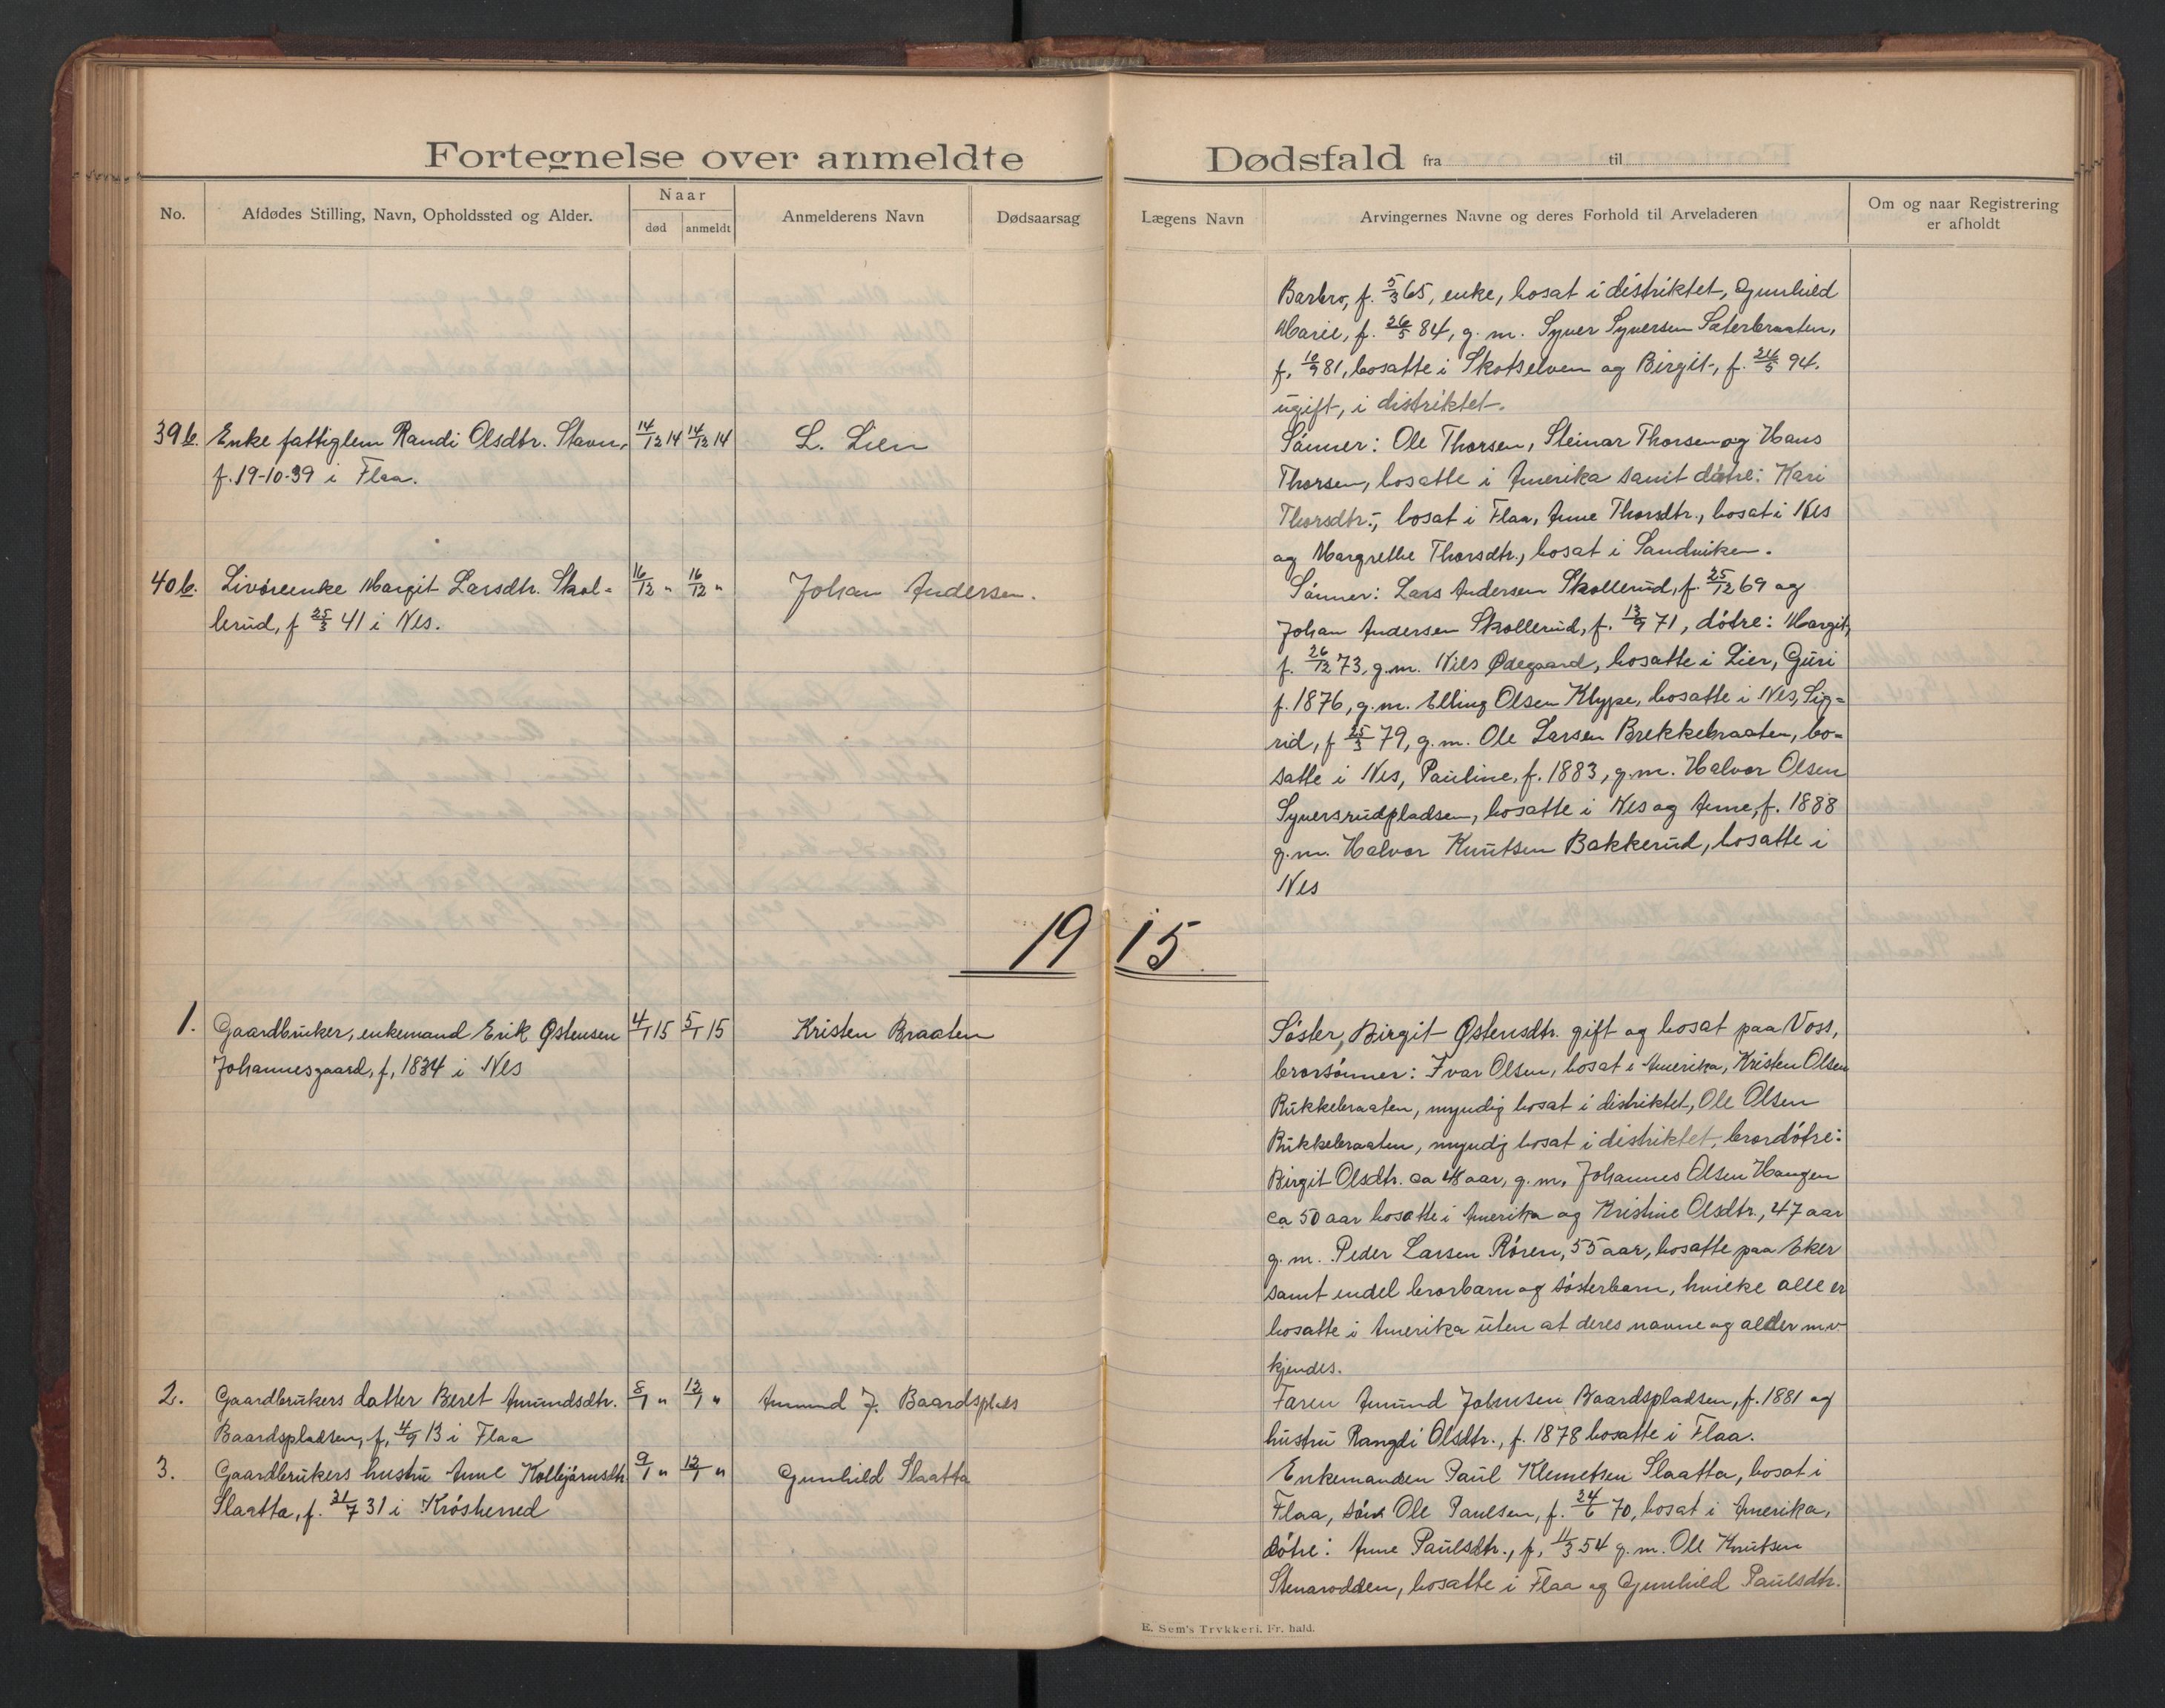 Fortegnelse over anmeldte Dødsfald fra til
No.
Afdødes Stilling, Navn, Opholdssted og Alder.
Naar
død
anmeldt
Anmelderens Navn
Dødsaarsag
Lægens Navn
Arvingernes Navne og deres Forhold til Arveladeren
Om og naar Registrering
er afholdt
Barbro, f. 5/3 65, enke, bosat i distriktet, Gunhild
Marie, f. 26/5 84, g. m. Syver Syversen Sæterbraaten,
f. 10/9 81, bosatte i Skotselven og Birgit, f. 24/5 94.
ugift, i distriktet.
39b. Enke fattiglem Randi Olsdtr. Stavn, 14/12 14 14/12 14 L. Lien
f. 19-10-39 i Flaa.
Sønner: Ole Thorsen, Steinar Thorsen og Hans
Thorsen, bosatte i Amerika samt døtre: Kari
Thorsdtr., bosat i Flaa, Anne Thorsdtr., bosat i Nes
og Margrethe Thorsdtr., bosat i Sandviken.
40b. Livøreenke Margit Larsdtr. Skol- 16/12 " 16/12 " Johan Andersen.
lerud, f 25/3 41 i Nes.
Sønner: Lars Andersen Skollerud, f. 25/12 69 og
Johan Andersen Skollerud, f. 13/9 71, døtre: Margit,
f. 26/12 73, g. m. Nils Ødegaard, bosatte i Lier, Guri
f. 1876, g. m. Elling Olsen Klype, bosatte i Nes, Sig-
rid, f 25/3 79, g. m. Ole Larsen Brekkebraaten, bo-
satte i Nes, Pauline, f. 1883, g. m. Halvor Olsen
Syversrudpladsen, bosatte i Nes og Anne, f. 1888
g. m. Halvor Knutsen Bakkerud, bosatte i
Nes
1915
1. Gaardbruker, enkemand Erik Østensen 4/1 15 5/1 15 Kristen Braaten
Johannesgaard, f. 1834 i Nes
Søster, Birgit Østensdtr. gift og bosat paa Voss,
brorsønner: Ivar Olsen, bosat i Amerika, Kristen Olsen
Rukkebraaten, myndig bosat i distriktet, Ole Olsen
Rukkebraaten, myndig bosat i distriktet, brordøtre:
Birgit Olsdtr. ca 48 aar, g. m. Johannes Olsen Haugen
ca 50 aar bosatte i Amerika og Kristine Olsdtr., 47 aar
g. m. Peder Larsen Røren, 55 aar, bosatte paa Eker
samt endel brorbarn og søsterbarn, hvilke alle er
bosatte i Amerika uten at deres navne og alder m.v.
kjendes.
2. Gaardbrukers datter Beret Amundsdtr. 8/1 " 12/1 " Amund J. Baardsplads
Baardspladsen, f. 4/9 13 i Flaa
Faren Amund Johnsen Baardspladsen, f. 1881 og
hustru Rangdi Olsdtr., f. 1878 bosatte i Flaa.
3. Gaardbrukers hustru Anne Kolbjørnsdtr 9/1 " 12/1 " Gunhild Slaatta
Slaatta, f. 31/7 31 i Krødsherred
Enkemanden Paul Klemetsen Slaatta, bosat i
Flaa, søn Ole Paulsen, f. 24/6 70, bosat i Amerika,
døtre: Anne Paulsdtr., f. 11/3 54 g. m. Ole Knutsen
Stenarodden, bosatte i Flaa og Gunhild Paulsdtr.
E. Sem's Trykkeri. Fr. hald.